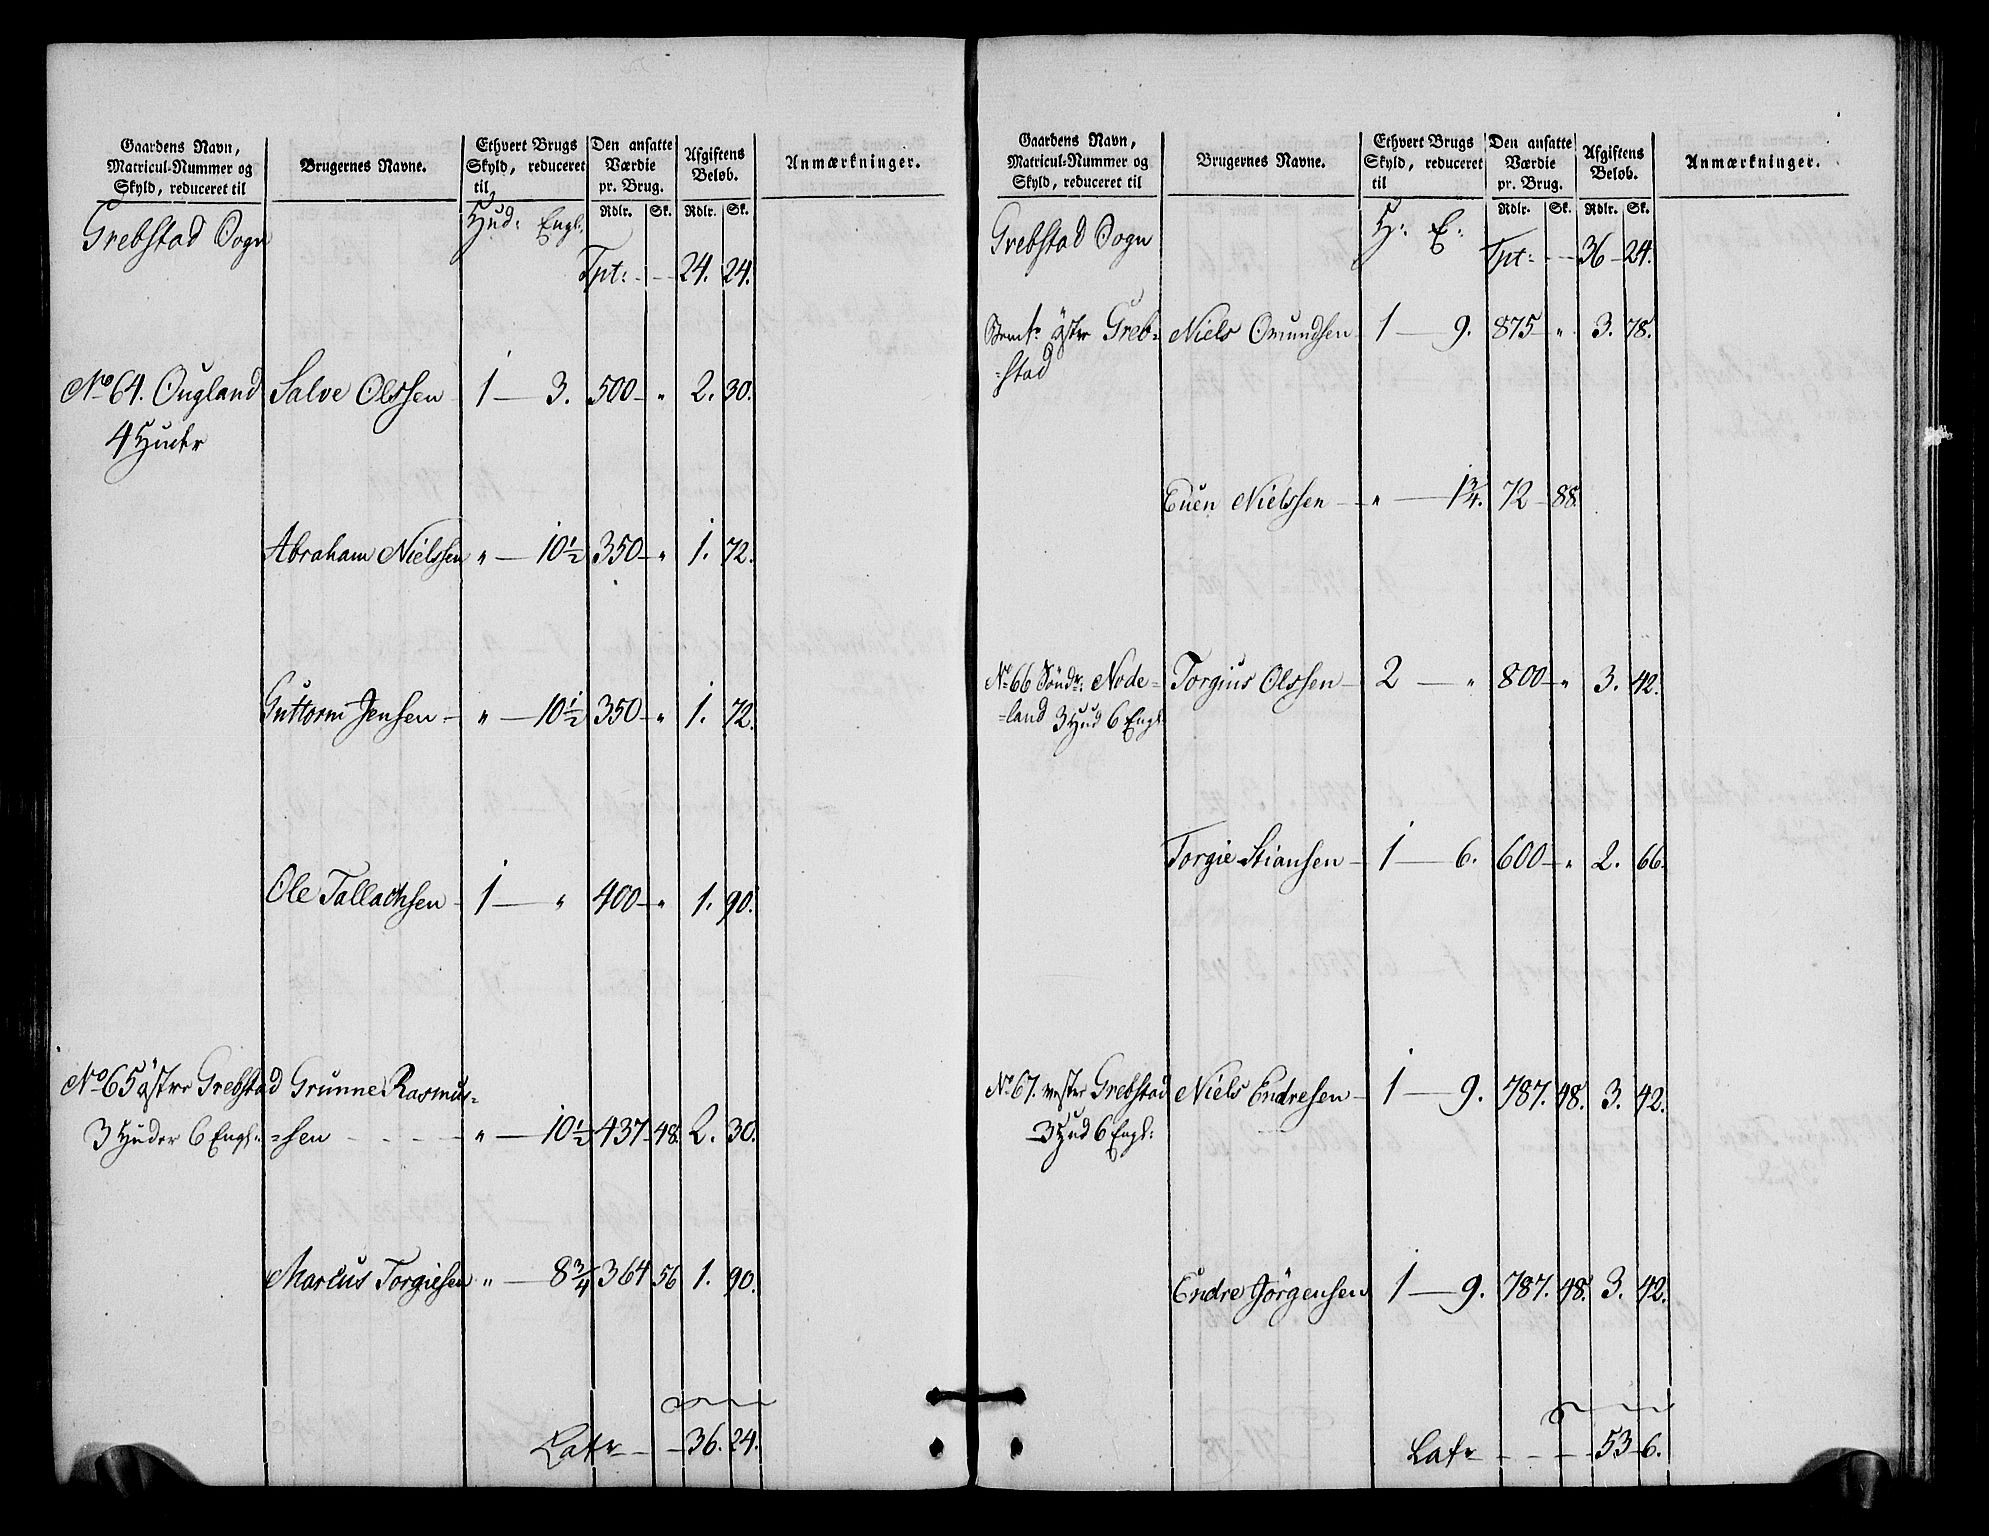 Gaardens Navn, Matricul-Nummer og Skyld, reduceret til | Brugernes Navne. | Ethvert Brugs Skyld, reduceret til | Den ansatte Værdie pr. Brug. | Afgiftens Beløb. | Anmærkninger.
Hud: Engl: | Rdlr. | Sk. | Rdlr. | Sk.
Grebstad Sogn
Tpt: - - 24. 24.
No 64. Ougland Salve Olssen 1 — 3. 500 — „ 2. 30.
4 Huder
Abraham Nielssen „ — 10½ 350 — „ 1. 72.
Guttorm Jensen — „ — 10½ 350 — „ 1. 72.
Ole Tallachsen — 1 — „ 400 — „ 1. 90.
No 65 østre Grebstad Grunne Rasmus=
3 Huder 6 Engl: =sen - - - - „ — 10½ 437 48. 2. 30.
Marcus Torgiesen „ — 8¾ 364 56 1. 90.
Latr — - - 36. 24.
Gaardens Navn, Matricul-Nummer og Skyld, reduceret til | Brugernes Navne. | Ethvert Brugs Skyld, reduceret til | Den ansatte Værdie pr. Brug. | Afgiftens Beløb. | Anmærkninger.
H: E: | Rdlr. | Sk. | Rdlr. | Sk.
Grebstad Sogn
Tpt: - - 36 — 24.
østre Greb= Niels Omundsen 1 — 9. 875 „ 3. 78.
=stad
Euen Nielssen — „ — 1¾. 72 — 88.
No 66 Søndr: Node= Torgius Olssen — 2 — „ 800 — „ 3. 42.
=land 3 Hud 6 Engl:
Torgie Stiansen — 1 — 6. 600 — „ 2. 66.
No 67. vestre Grebstad Niels Endresen — 1 — 9. 787. 48. 3. 42.
3 Hud 6 Engl:
Endre Jørgensen 1 — 9. 787. 48. 3. 42.
Latr - - - 53 — 6.